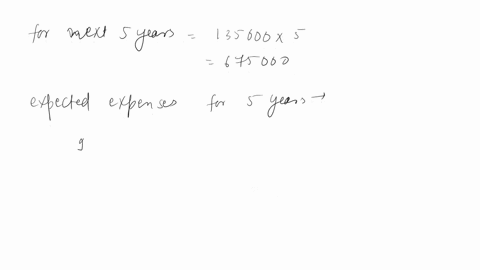 for next 5 years = 135000 x 5
= 675000
expected expenses for 5 years →
9